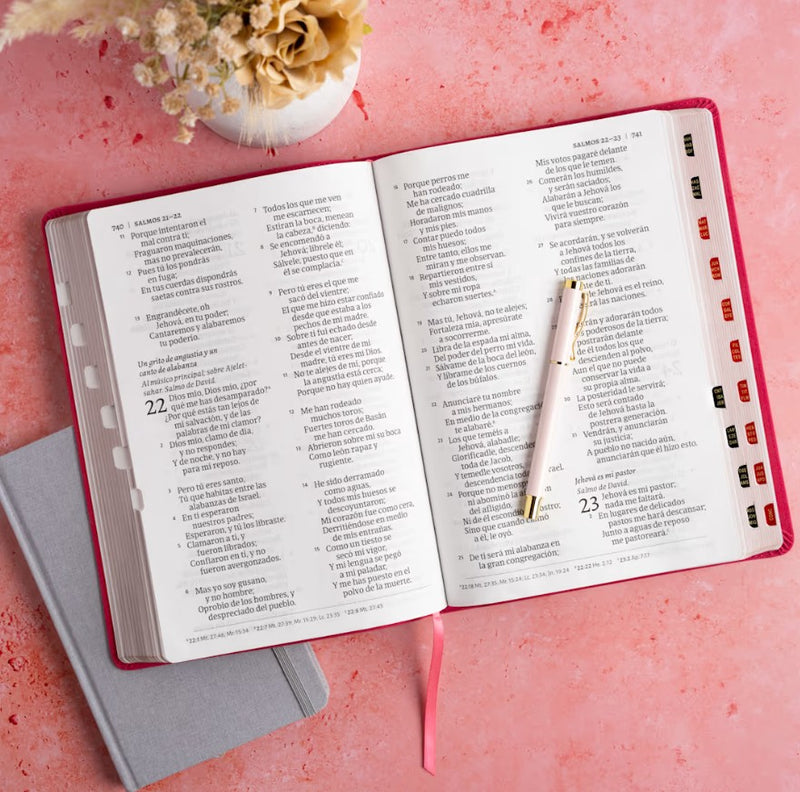 740 | SALMOS 21–22
11 Porque intentaron el
mal contra ti;
Fraguaron maquinaciones,
mas no prevalecerán,
12 Pues tú los pondrás
en fuga;
En tus cuerdas dispondrás
saetas contra sus rostros.
13 Engrandécete, oh
Jehová, en tu poder;
Cantaremos y alabaremos
tu poderío.
Un grito de angustia y un
canto de alabanza
Al músico principal; sobre Ajelet-
sahar. Salmo de David.
22 Dios mío, Dios mío, ¿por
qué me has desamparado?
¿Por qué estás tan lejos de
mi salvación, y de las
palabras de mi clamor?
2 Dios mío, clamo de día,
y no respondes;
Y de noche, y no hay
para mí reposo.
3 Pero tú eres santo,
Tú que habitas entre las
alabanzas de Israel.
4 En ti esperaron
nuestros padres;
Esperaron, y tú los libraste.
5 Clamaron a ti, y
fueron librados;
Confiaron en ti, y no
fueron avergonzados.
6 Mas yo soy gusano,
y no hombre;
Oprobio de los hombres, y
despreciado del pueblo.
7 Todos los que me ven
me escarnecen;
Estiran la boca, menean
la cabeza, diciendo:
8 Se encomendó a
Jehová; líbrele él;
Sálvele, puesto que en
él se complacía.
9 Pero tú eres el que me
sacó del vientre;
El que me hizo estar confiado
desde que estaba a los
pechos de mi madre.
10 Sobre ti fui echado desde
antes de nacer;
Desde el vientre de mi
madre, tú eres mi Dios.
11 No te alejes de mí, porque
la angustia está cerca;
Porque no hay quien ayude.
12 Me han rodeado
muchos toros;
Fuertes toros de Basán
me han cercado.
13 Abrieron sobre mí su boca
Como león rapaz y
rugiente.
14 He sido derramado
como aguas,
Y todos mis huesos se
descoyuntaron;
Mi corazón fue como cera,
Derritiéndose en medio
de mis entrañas.
15 Como un tiesto se
secó mi vigor,
Y mi lengua se pegó
a mi paladar,
Y me has puesto en el
polvo de la muerte.
22:1 Mt. 27:46; Mr. 15:34 22:7 Mt. 27:39; Mr. 15:29; Lc. 23:35 22:8 Mt. 27:43
SALMOS 22–23 | 741
16 Porque perros me
han rodeado;
Me ha cercado cuadrilla
de malignos;
Horadaron mis manos
y mis pies.
17 Contar puedo todos
mis huesos;
Entre tanto, ellos me
miran y me observan.
18 Repartieron entre sí
mis vestidos,
Y sobre mi ropa
echaron suertes.
19 Mas tú, Jehová, no te alejes;
Fortaleza mía, apresúrate
a socorrerme.
20 Libra de la espada mi alma,
Del poder del perro mi vida.
21 Sálvame de la boca del león,
Y líbrame de los cuernos
de los búfalos.
22 Anunciaré tu nombre
a mis hermanos;
En medio de la congregación
te alabaré.
23 Los que teméis a
Jehová, alabadle;
Glorificadle, descendencia
toda de Jacob,
Y temedle vosotros,
descendencia toda Israel.
24 Porque no menospreció
ni abominó la aflicción
del afligido,
Ni de él escondió rostro;
Sino que cuando clamó
a él, le oyó.
25 De ti será mi alabanza en
la gran congregación;
Mis votos pagaré delante
de los que le temen.
26 Comerán los humildes,
y serán saciados;
Alabarán a Jehová los
que le buscan;
Vivirá vuestro corazón
para siempre.
27 Se acordarán, y se volverán
a Jehová todos los
confines de la tierra,
Y todas las familias de
las naciones adorarán
de ti.
Jehová es el reino,
las naciones.
y adorarán todos
poderosos de la tierra;
postrarán delante
de él todos los que
descienden al polvo,
Aun el que no puede
conservar la vida a
su propia alma.
30 La posteridad le servirá;
Esto será contado
de Jehová hasta la
postrera generación.
31 Vendrán, y anunciarán
su justicia;
A pueblo no nacido aún,
anunciarán que él hizo esto.
Jehová es mi pastor
Salmo de David.
23 Jehová es mi pastor;
nada me faltará.
2 En lugares de delicados
pastos me hará descansar;
Junto a aguas de reposo
me pastoreará.
22:18 Mt. 27:35; Mr. 15:24; Lc. 23:34; Jn. 19:24 22:22 He. 2:12 23:2 Ap. 7:17